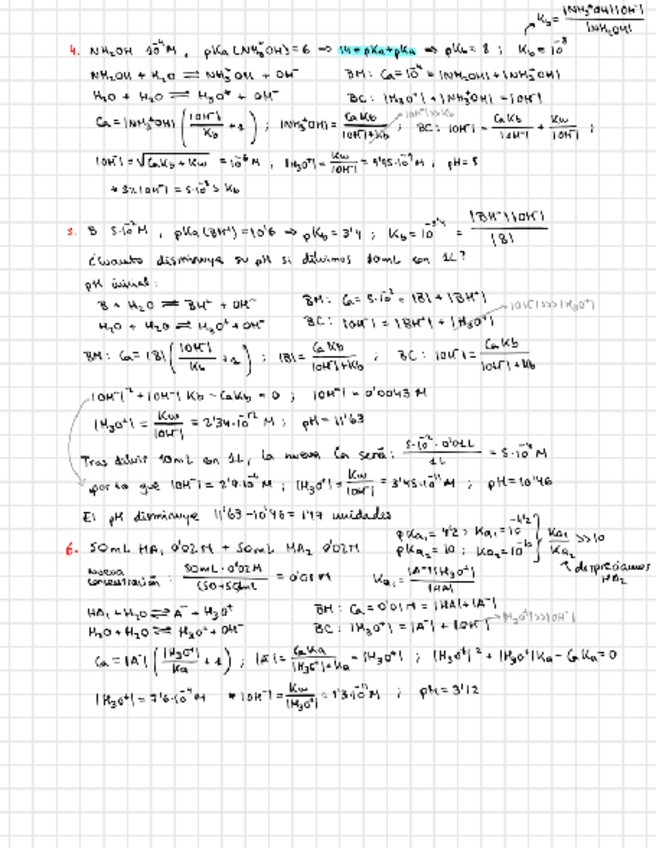 Kb = |NH3+OH||OH-| / |NH2OH|
4. NH2OH 10^-4 M, pKa (NH3+OH) = 6 ⇒ 14 = pKa + pKa ⇒ pKb = 8 ; Kb = 10^-8
NH2OH + H2O ⇌ NH3+OH + OH- BM: Ca = 10^-4 = |NH2OH| + |NH3+OH|
H2O + H2O ⇌ H3O+ + OH- BC: |H3O+| + |NH3+OH| = |OH-|
Ca = |NH3+OH| ( |OH-| / Kb + 1 ) ; |NH3+OH| = CaKb / |OH-|+Kb |OH-|>>Kb ; BC: |OH-| = CaKb / |OH-| + Kw / |OH-| ;
|OH-| = √(CaKb + Kw) = 10^-6 M ; |H3O+| = Kw / |OH-| = 9'95·10^-9 M ; pH = 8
5. B 5·10^-2 M, pKa (BH+) = 10'6 ⇒ pKb = 3'4 ; Kb = 10^-3'4 = |BH+||OH-| / |B|
¿Cuánto disminuye su pH si diluimos 10mL con 1L?
pH inicial:
B + H2O ⇌ BH+ + OH- BM: Ca = 5·10^-2 = |B| + |BH+|
H2O + H2O ⇌ H3O+ + OH- BC: |OH-| = |BH+| + |H3O+| |OH-|>>>|H3O+|
BM: Ca = |B| ( |OH-| / Kb + 1 ) ; |B| = CaKb / |OH-|+Kb ; BC: |OH-| = CaKb / |OH-|+Kb
|OH-|^2 + |OH-| Kb - CaKb = 0 ; |OH-| = 0'0043 M
|H3O+| = Kw / |OH-| = 2'34·10^-12 M ; pH = 11'63
Tras diluir 10mL con 1L, la nueva Ca será: 5·10^-2 · 0'01L / 1L = 5·10^-4 M
por lo que |OH-| = 2'9·10^-4 M ; |H3O+| = Kw / |OH-| = 3'45·10^-11 M ; pH = 10'46
El pH disminuye 11'63 - 10'46 = 1'17 unidades
6. 50mL HA1 0'02M + 50mL HA2 0'02M pKa1 = 4'2 → Ka1 = 10^-4'2
pKa2 = 10 ; Ka2 = 10^-10 } Ka1 / Ka2 >> 10
despreciamos HA2
nueva concentración: 50mL · 0'02M / (50+50)mL = 0'01M Ka1 = |A-||H3O+| / |HA|
HA1 + H2O ⇌ A- + H3O+ BM: Ca = 0'01M = |HA| + |A-|
H2O + H2O ⇌ H3O+ + OH- BC: |H3O+| = |A-| + |OH-| |H3O+|>>|OH-|
Ca = |A-| ( |H3O+| / Ka + 1 ) ; |A-| = CaKa / |H3O+|+Ka = |H3O+| ; |H3O+|^2 + |H3O+|Ka - CaKa = 0
|H3O+| = 7'6·10^-4 M * |OH-| = Kw / |H3O+| = 1'3·10^-11 M ; pH = 3'12